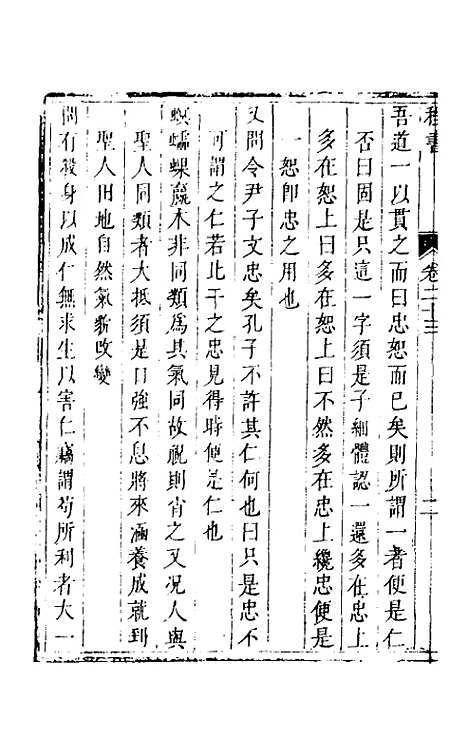 程書 卷二十三 二
吾道一以貫之而曰忠恕而已矣則所謂一者便是仁
否曰固是只這一字須是子細體認一還多在忠上
多在恕上曰多在恕上曰不然多在忠上纔忠便是
一恕卽忠之用也
又問令尹子文忠矣孔子不許其仁何也曰只是忠不
可謂之仁若比干之忠見得時便是仁也
螟蠕蜾蠃本非同類爲其氣同故祝則肖之又況人與
聖人同類者大抵須是自強不息將來涵養成就到
聖人田地自然氣貌改變
問有殺身以成仁無求生以害仁竊謂苟所利者大一